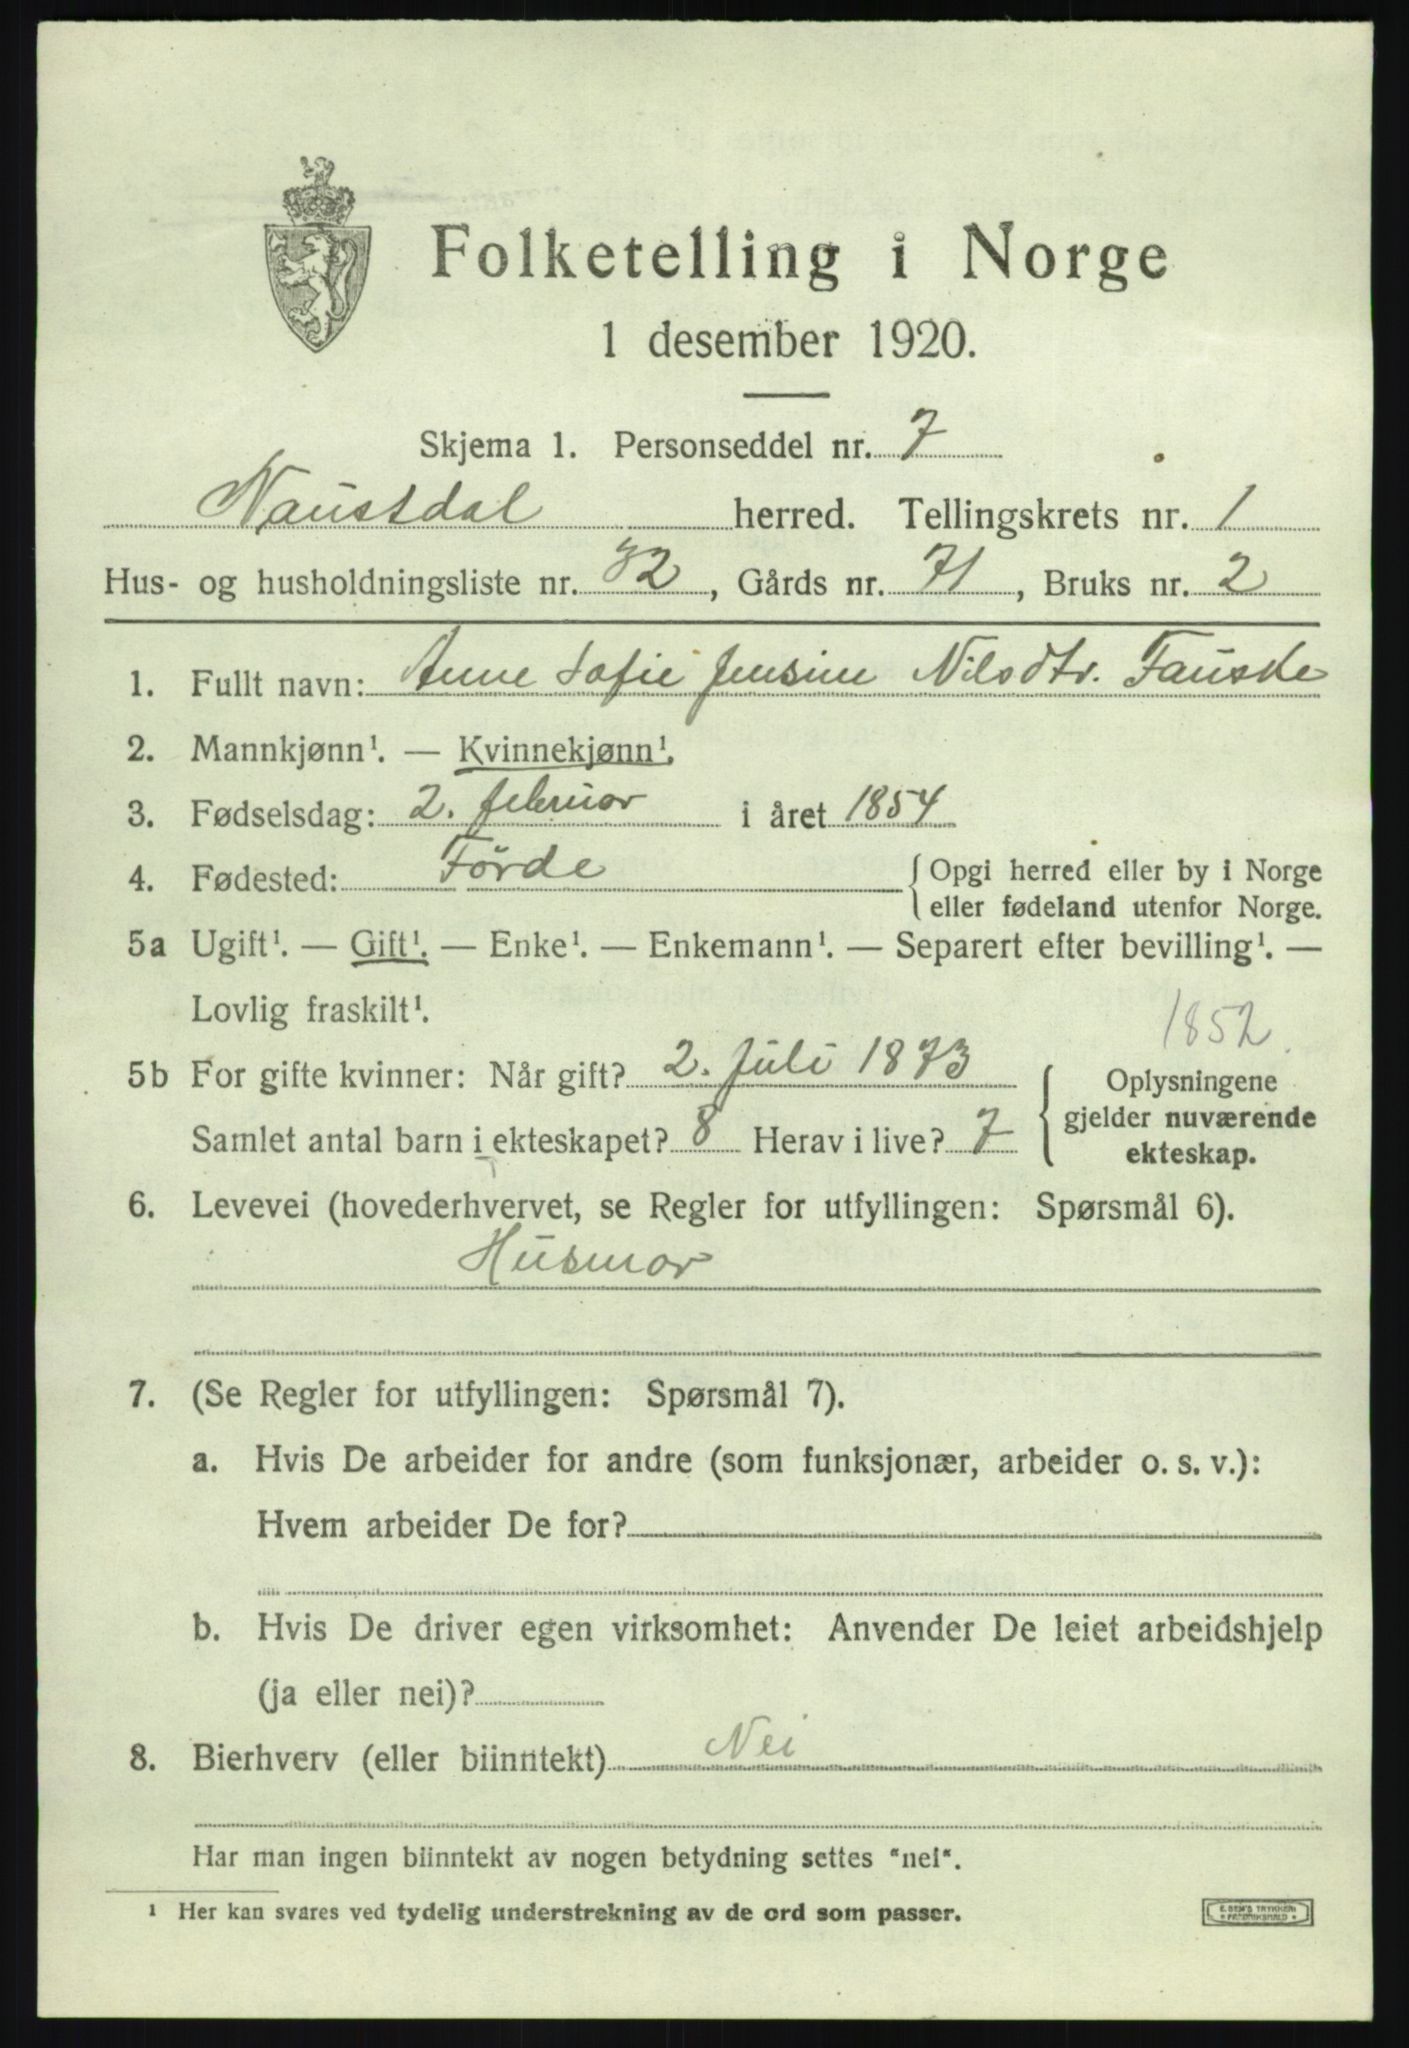 Folketelling i Norge
1 desember 1920.
Skjema 1. Personseddel nr. 7
Naustdal herred. Tellingskrets nr. 1
Hus- og husholdningsliste nr. 32, Gårds nr. 71, Bruks nr. 2
1. Fullt navn: Anne Sofie Jensine Nilsdtr. Fauske
2. Mannkjønn¹. — Kvinnekjønn¹.
3. Fødselsdag: 2. februar i året 1854
4. Fødested: Förde { Opgi herred eller by i Norge
eller fødeland utenfor Norge.
5a Ugift¹. — Gift¹. — Enke¹. — Enkemann¹. — Separert efter bevilling¹. —
Lovlig fraskilt¹.
1852
5b For gifte kvinner: Når gift? 2. Juli 1873
Samlet antal barn i ekteskapet? 8 Herav i live? 7
{ Oplysningene
gjelder nuværende
ekteskap.
6. Levevei (hovederhvervet, se Regler for utfyllingen: Spørsmål 6).
Husmor
7. (Se Regler for utfyllingen: Spørsmål 7).
a. Hvis De arbeider for andre (som funksjonær, arbeider o. s. v.):
Hvem arbeider De for?
b. Hvis De driver egen virksomhet: Anvender De leiet arbeidshjelp
(ja eller nei)?
8. Bierhverv (eller biinntekt) Nei
Har man ingen biinntekt av nogen betydning settes "nei".
¹ Her kan svares ved tydelig understrekning av de ord som passer.
E. SEM'S TRYKKERI
FREDRIKSHALD